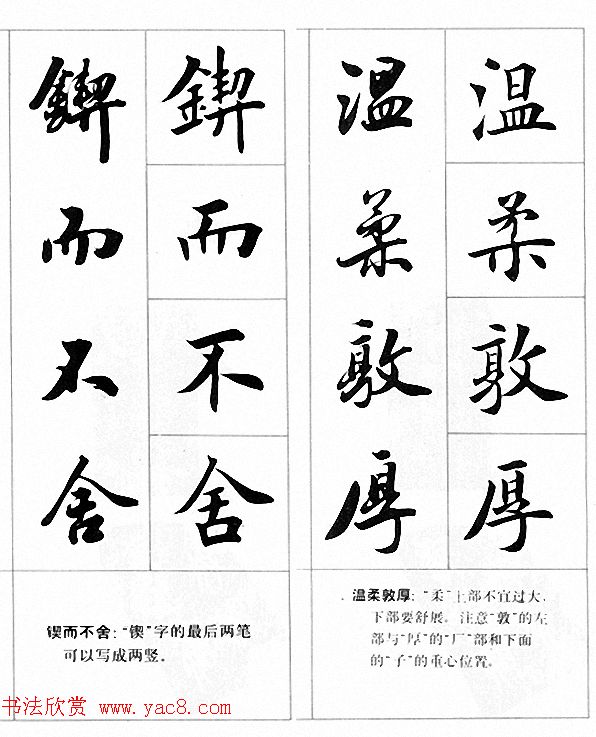 温柔敦厚
温柔敦厚
温柔敦厚:“柔”上部不宜过大,
下部要舒展。注意“敦”的左
部与“厚”的“厂”部和下面
的“子”的重心位置。
鍥而不舍
鍥而不舍
锲而不舍:“锲”字的最后两笔
可以写成两竖。
书法欣赏 www.yac8.com